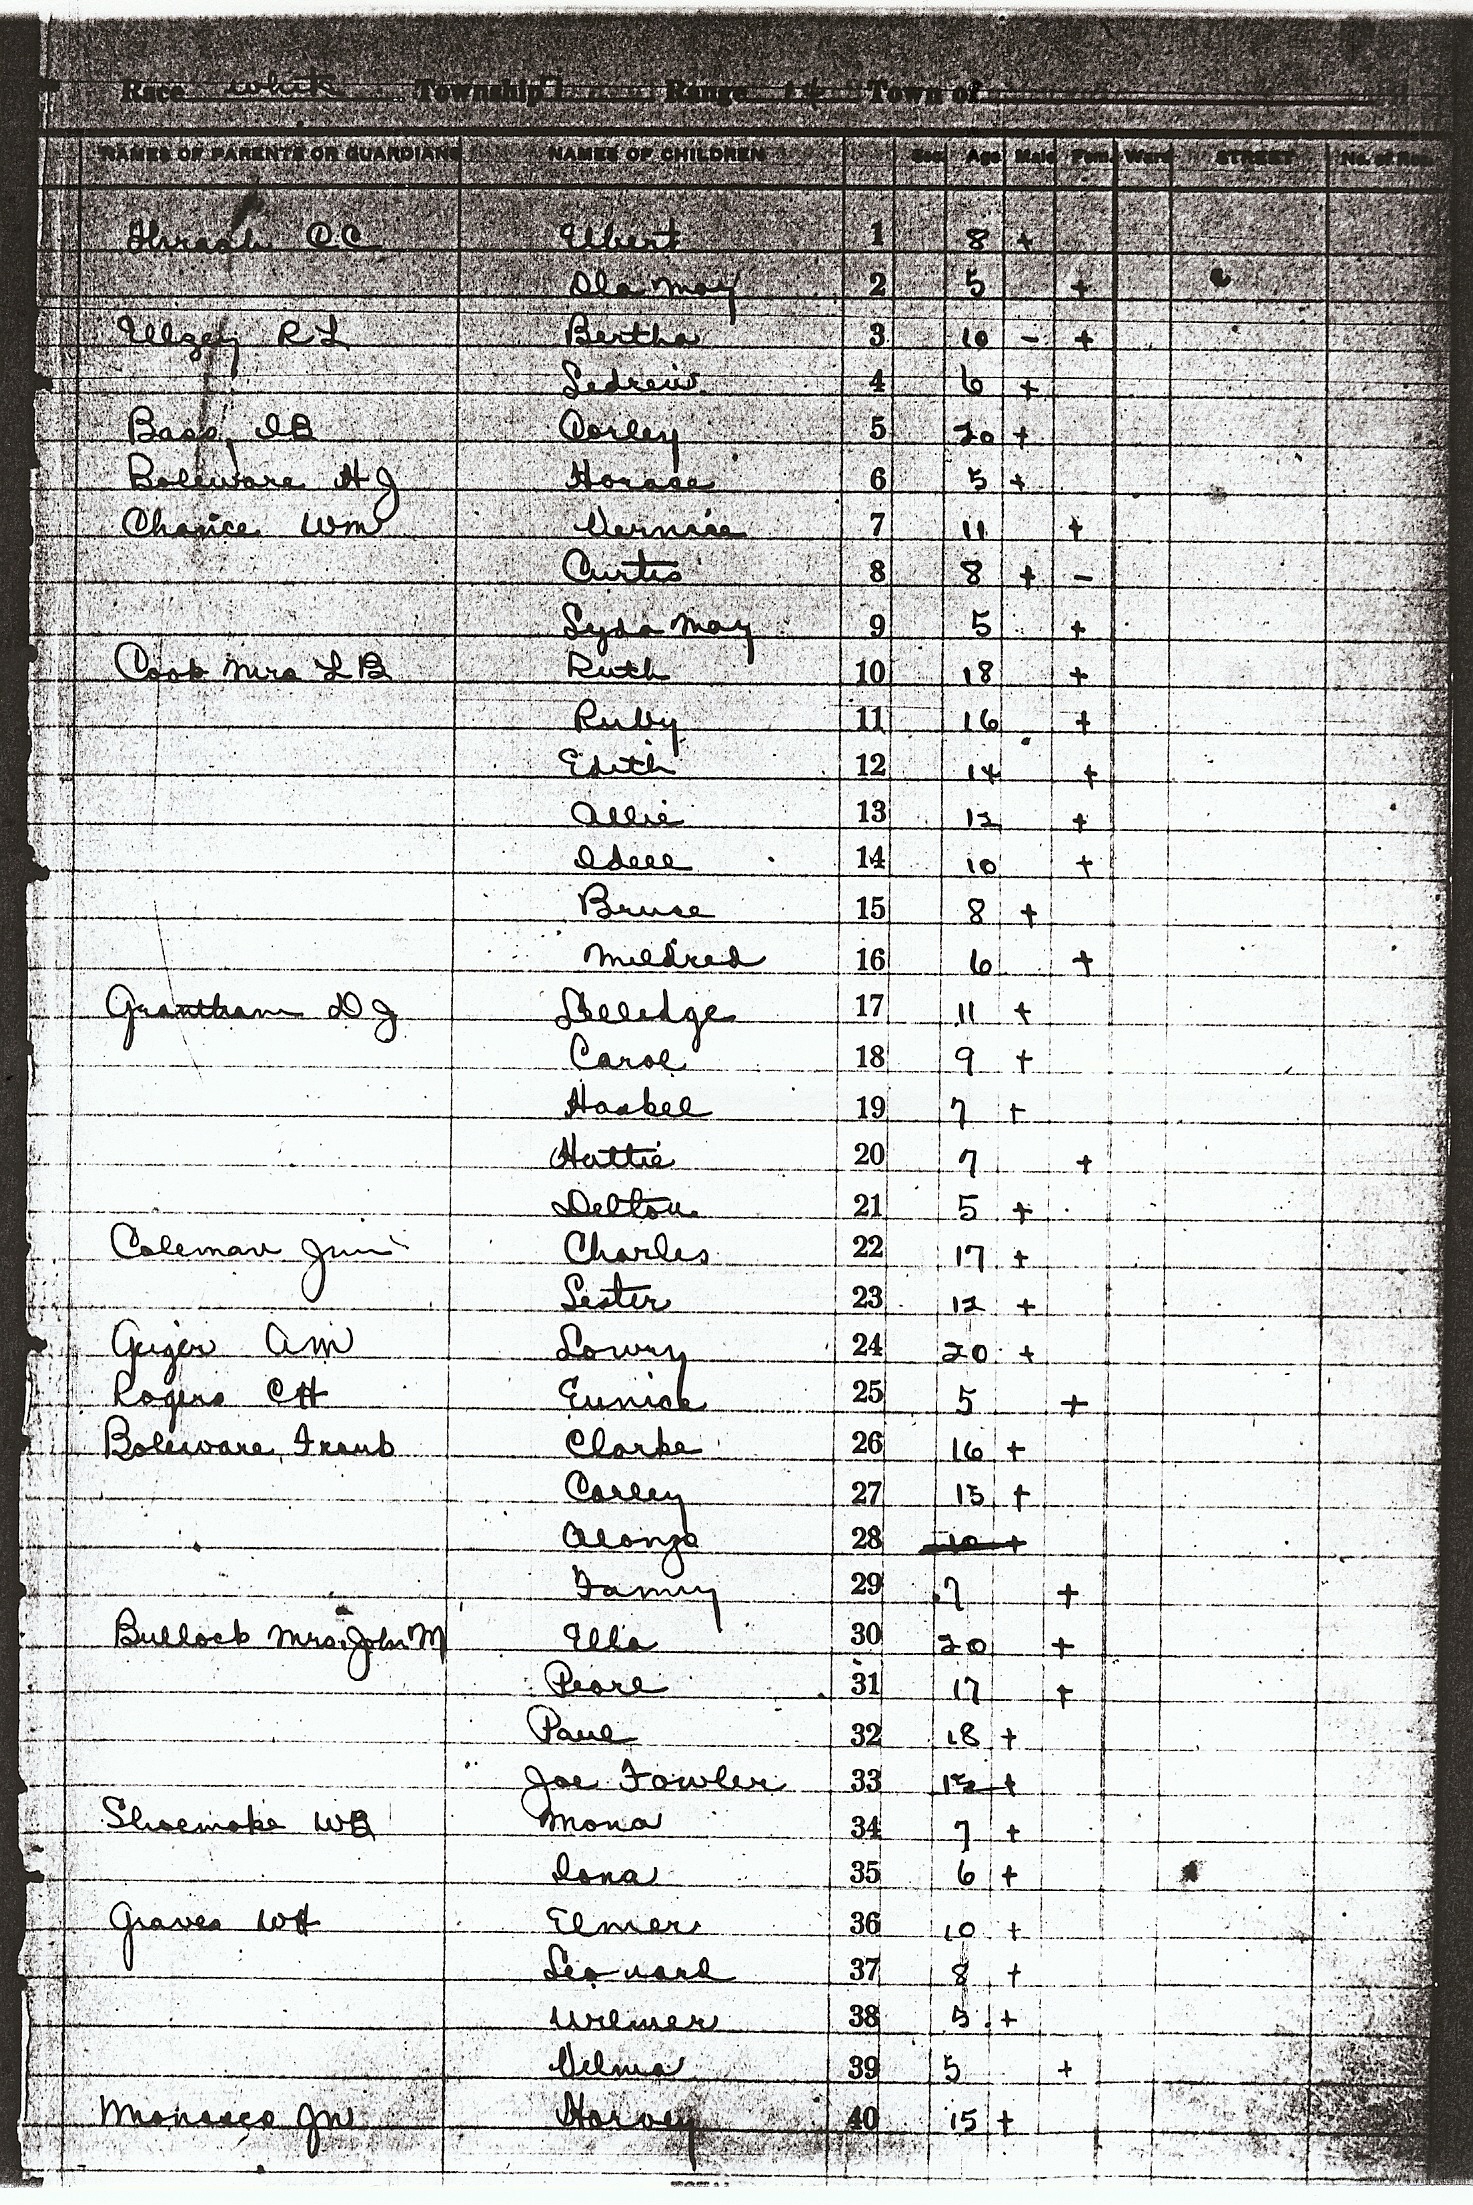 Race white Township Range 14 Town of
NAMES OF PARENTS OR GUARDIANS NAMES OF CHILDREN Sec. Age Male Fem. Ward STREET No. of Res.
C.C. Elbert 1 8 +
Ola May 2 5 +
Ulzey R L Bertha 3 10 - +
Ledrew 4 6 +
Bass, I B Corley 5 20 +
Boleware H J Horase 6 5 +
Chance Wm Vernice 7 11 +
Curtis 8 8 + -
Lyda May 9 5 +
Cook Mrs L B Ruth 10 18 +
Ruby 11 16 +
Edith 12 14 +
Allie 13 12 +
Idell 14 10 +
Bruse 15 8 +
Mildred 16 6 +
Grantham D J 17 11 +
Carol 18 9 +
Haskel 19 7 +
Hattie 20 7 +
Delton 21 5 +
Coleman Jim Charles 22 17 +
Lester 23 12 +
Geiger A M Lowry 24 20 +
Rogers C H Eunice 25 5 +
Boleware, Frank Clarke 26 16 +
Corley 27 15 +
Alonzo 28 10 +
Fanny 29 7 +
Bullock Mrs. John M Ella 30 20 +
Pearl 31 17 +
Paul 32 18 +
Joe Fowler 33 12 +
Shoemake W B Mona 34 7 +
Iona 35 6 +
Graves W H Elmer 36 10 +
Leonard 37 8 +
Wilmer 38 5 +
Velma 39 5 +
Monasco J W Harvey 40 15 +